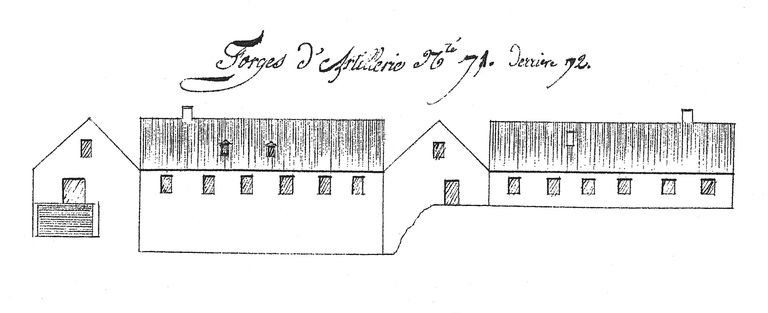 Forges d'Artillerie Nté 71. derriére 72.